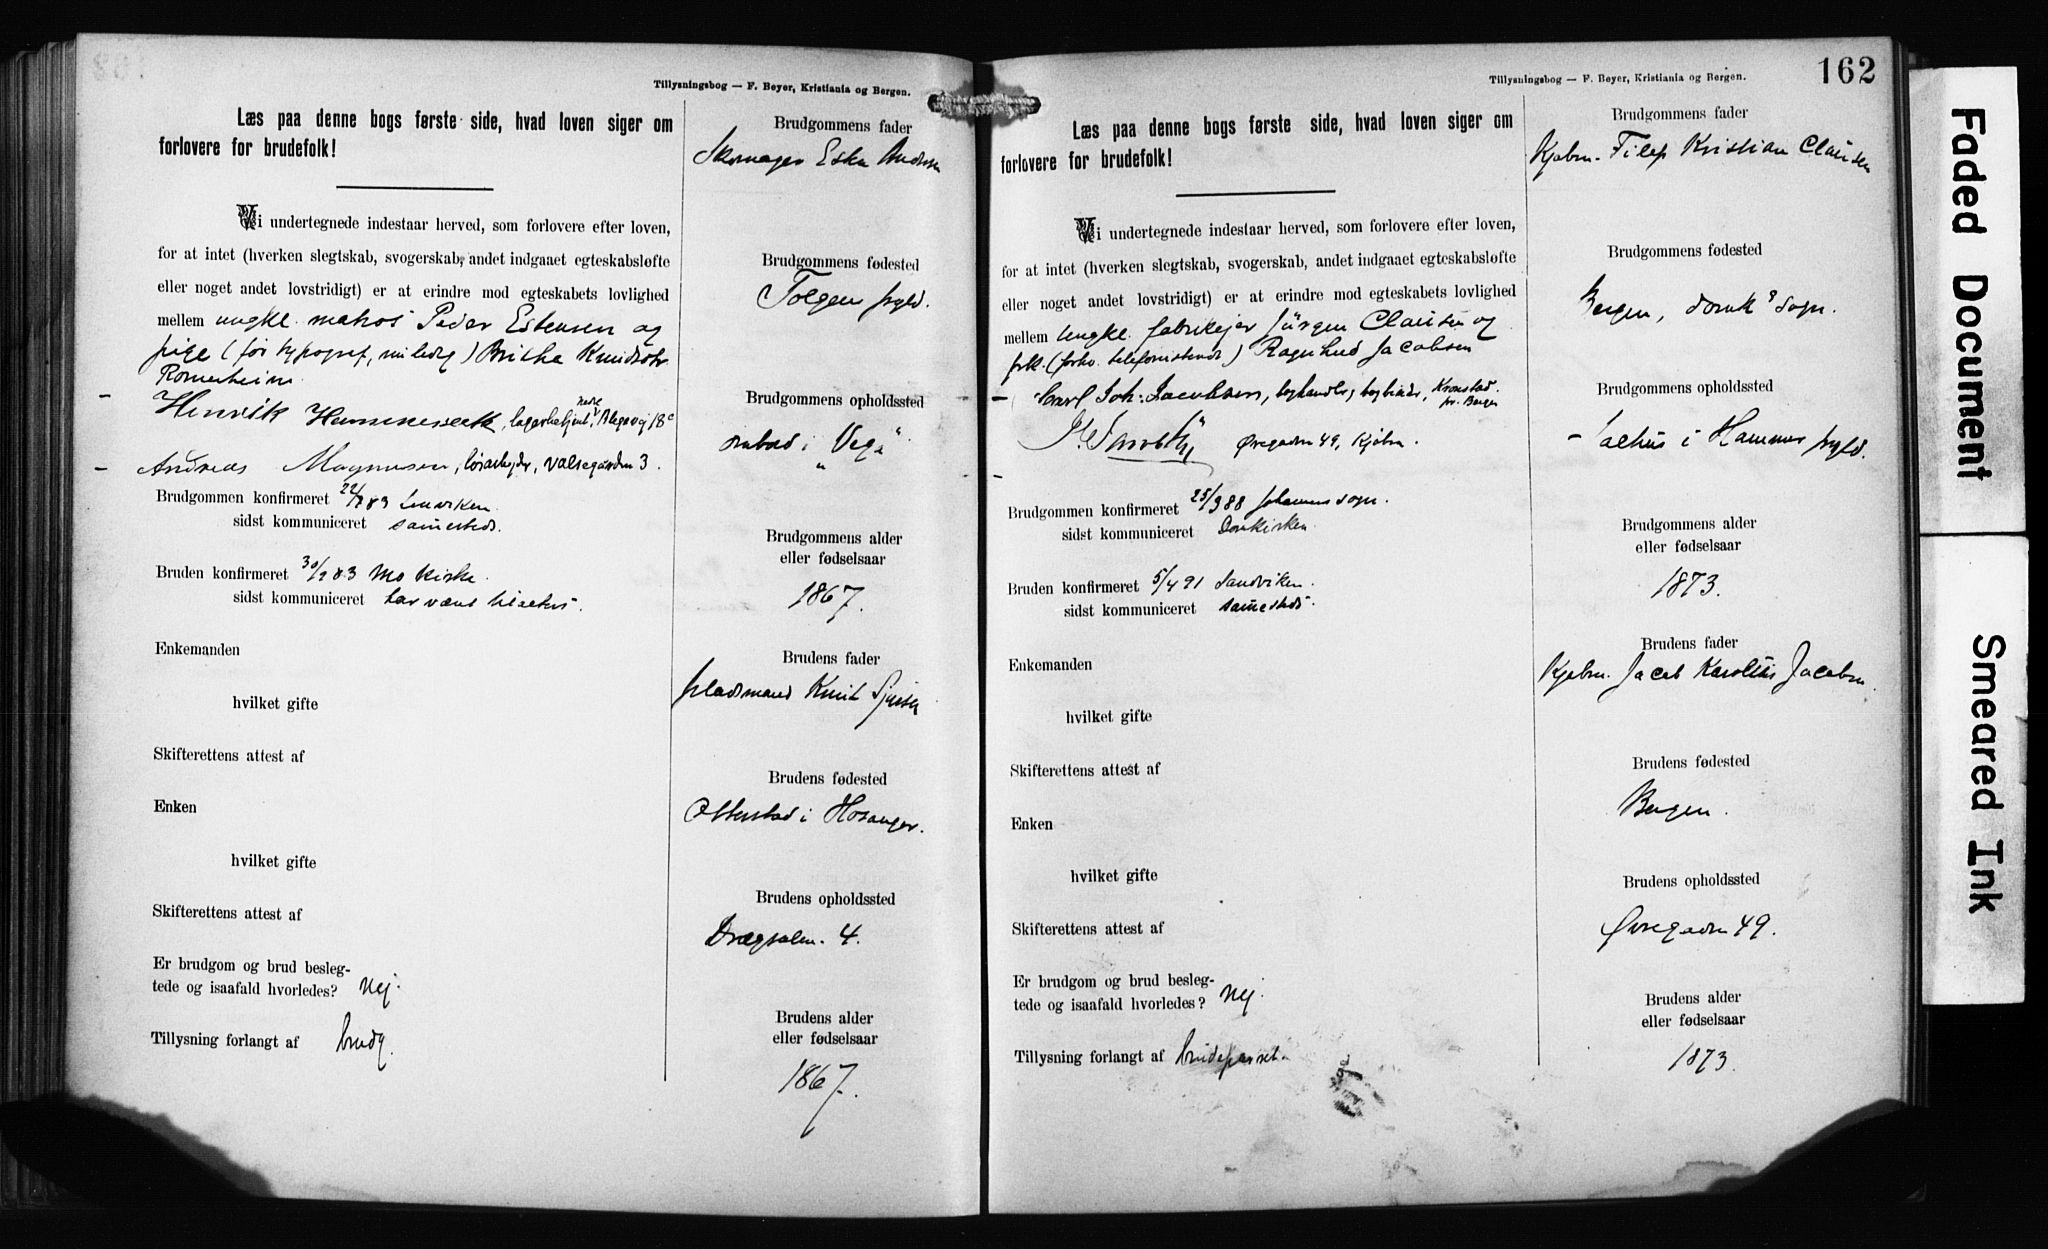 Tillysningsbog — F. Beyer, Kristiania og Bergen.
Læs paa denne bogs første side, hvad loven siger om
forlovere for brudefolk!
Vi undertegnede indestaar herved, som forlovere efter loven,
for at intet (hverken slegtskab, svogerskab, andet indgaaet egteskabsløfte
eller noget andet lovstridigt) er at erindre mod egteskabets lovlighed
mellem ungkl. matros Peder Estensen og
pige (før typograf, nu ledig) Brithe Knudsdtr
Romarheim
Henrik Hammerseth, lagerbetjent, Blegevej 18c
Andreas Magnusen, løsarbejder, Valsegården 3.
Brudgommen konfirmeret 22/7 83 Lenviken
sidst kommuniceret sammesteds.
Bruden konfirmeret 30/9 83 Mo kirke.
sidst kommuniceret har været til alters.
Enkemanden
hvilket gifte
Skifterettens attest af
Enken
hvilket gifte
Skifterettens attest af
Er brudgom og brud besleg-
tede og isaafald hvorledes? Nej.
Tillysning forlangt af brudg.
Brudgommens fader
Skomager Esten Andersen
Brudgommens fødested
Tolgen prgld.
Brudgommens opholdssted
ombord i "Vega"
Brudgommens alder
eller fødselsaar
1867.
Brudens fader
pladsmand Knut
Brudens fødested
Otterstad i Hosanger.
Brudens opholdssted
Drægsalm. 4.
Brudens alder
eller fødselsaar
1867.
162
Tillysningsbog — F. Beyer, Kristiania og Bergen.
Læs paa denne bogs første side, hvad loven siger om
forlovere for brudefolk!
Vi undertegnede indestaar herved, som forlovere efter loven,
for at intet (hverken slegtskab, svogerskab, andet indgaaet egteskabsløfte
eller noget andet lovstridigt) er at erindre mod egteskabets lovlighed
mellem Ungkl. fabrikejer Jürgen Clausen og
frk. (forhv. telefonistinde) Ragnhild Jacobsen
Carl Joh: Jacobsen, boghandler, bogbinder, Kronstad pr. Bergen
Øvregaden 49, Kjøbm.
Brudgommen konfirmeret 25/3 88 Johannes sogn.
sidst kommuniceret Domkirken
Bruden konfirmeret 5/4 91 Sandviken.
sidst kommuniceret sammesteds.
Enkemanden
hvilket gifte
Skifterettens attest af
Enken
hvilket gifte
Skifterettens attest af
Er brudgom og brud besleg-
tede og isaafald hvorledes? Nej.
Tillysning forlangt af brudeparret.
Brudgommens fader
Kjøbm. Filep Kristian Clausen
Brudgommens fødested
Bergen, domk's sogn.
Brudgommens opholdssted
Salhus i Hammer prgld.
Brudgommens alder
eller fødselsaar
1873.
Brudens fader
Kjøbm. Jacob Karolius Jacobsen.
Brudens fødested
Bergen.
Brudens opholdssted
Øvregaden 49.
Brudens alder
eller fødselsaar
1873.
Faded Document
Smeared Ink